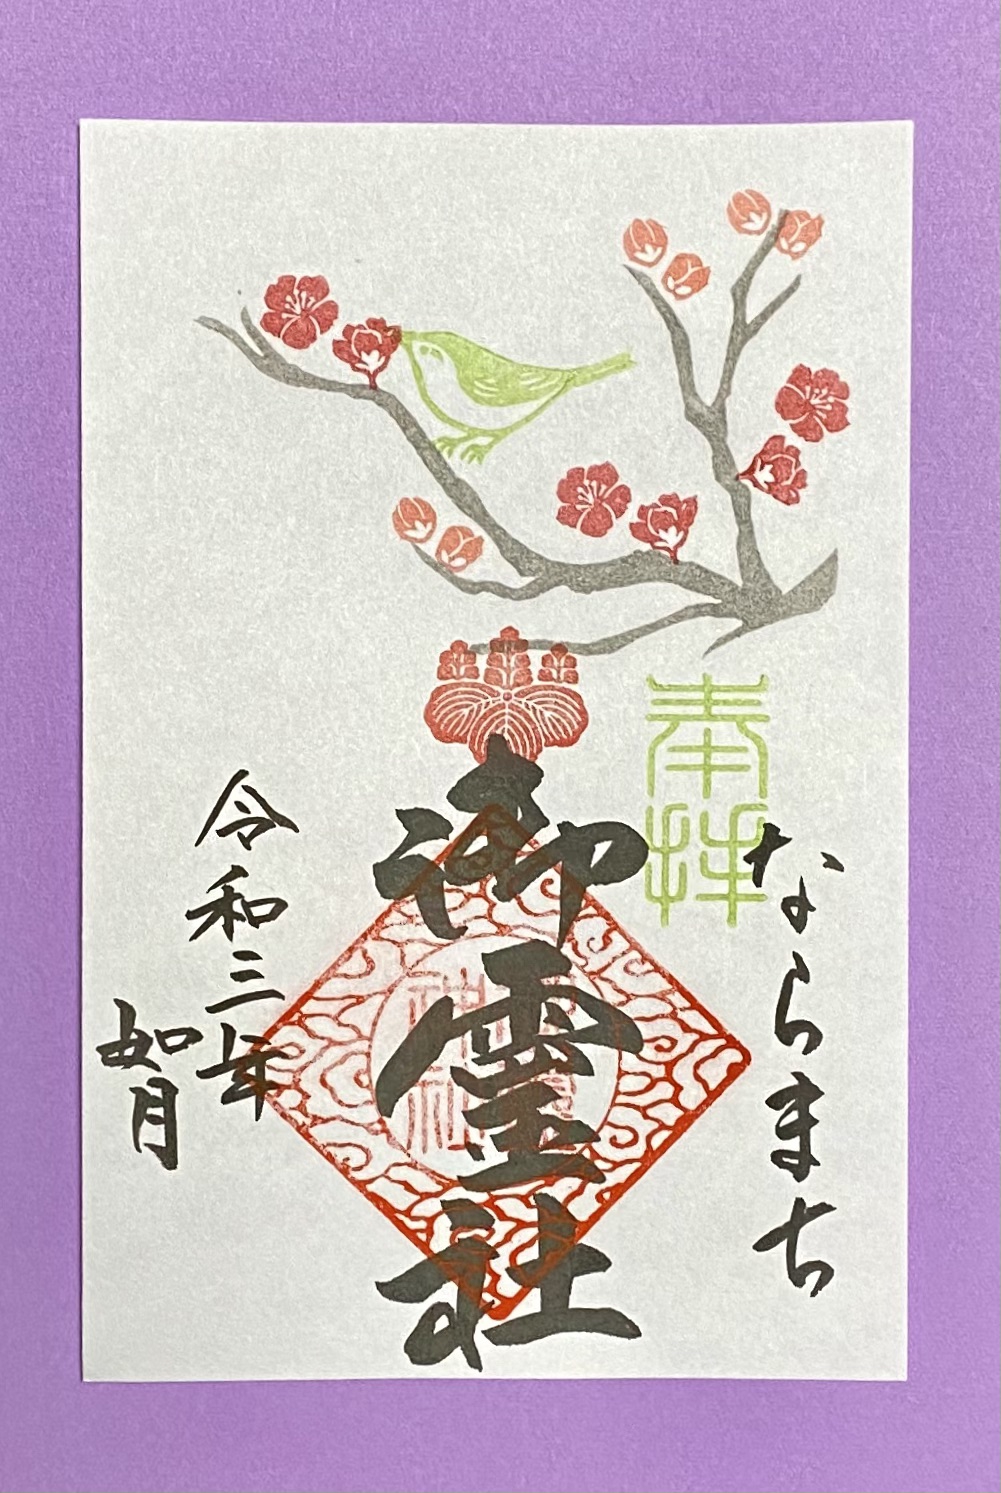 奉拝
ならまち
御霊社
令和三年
如月